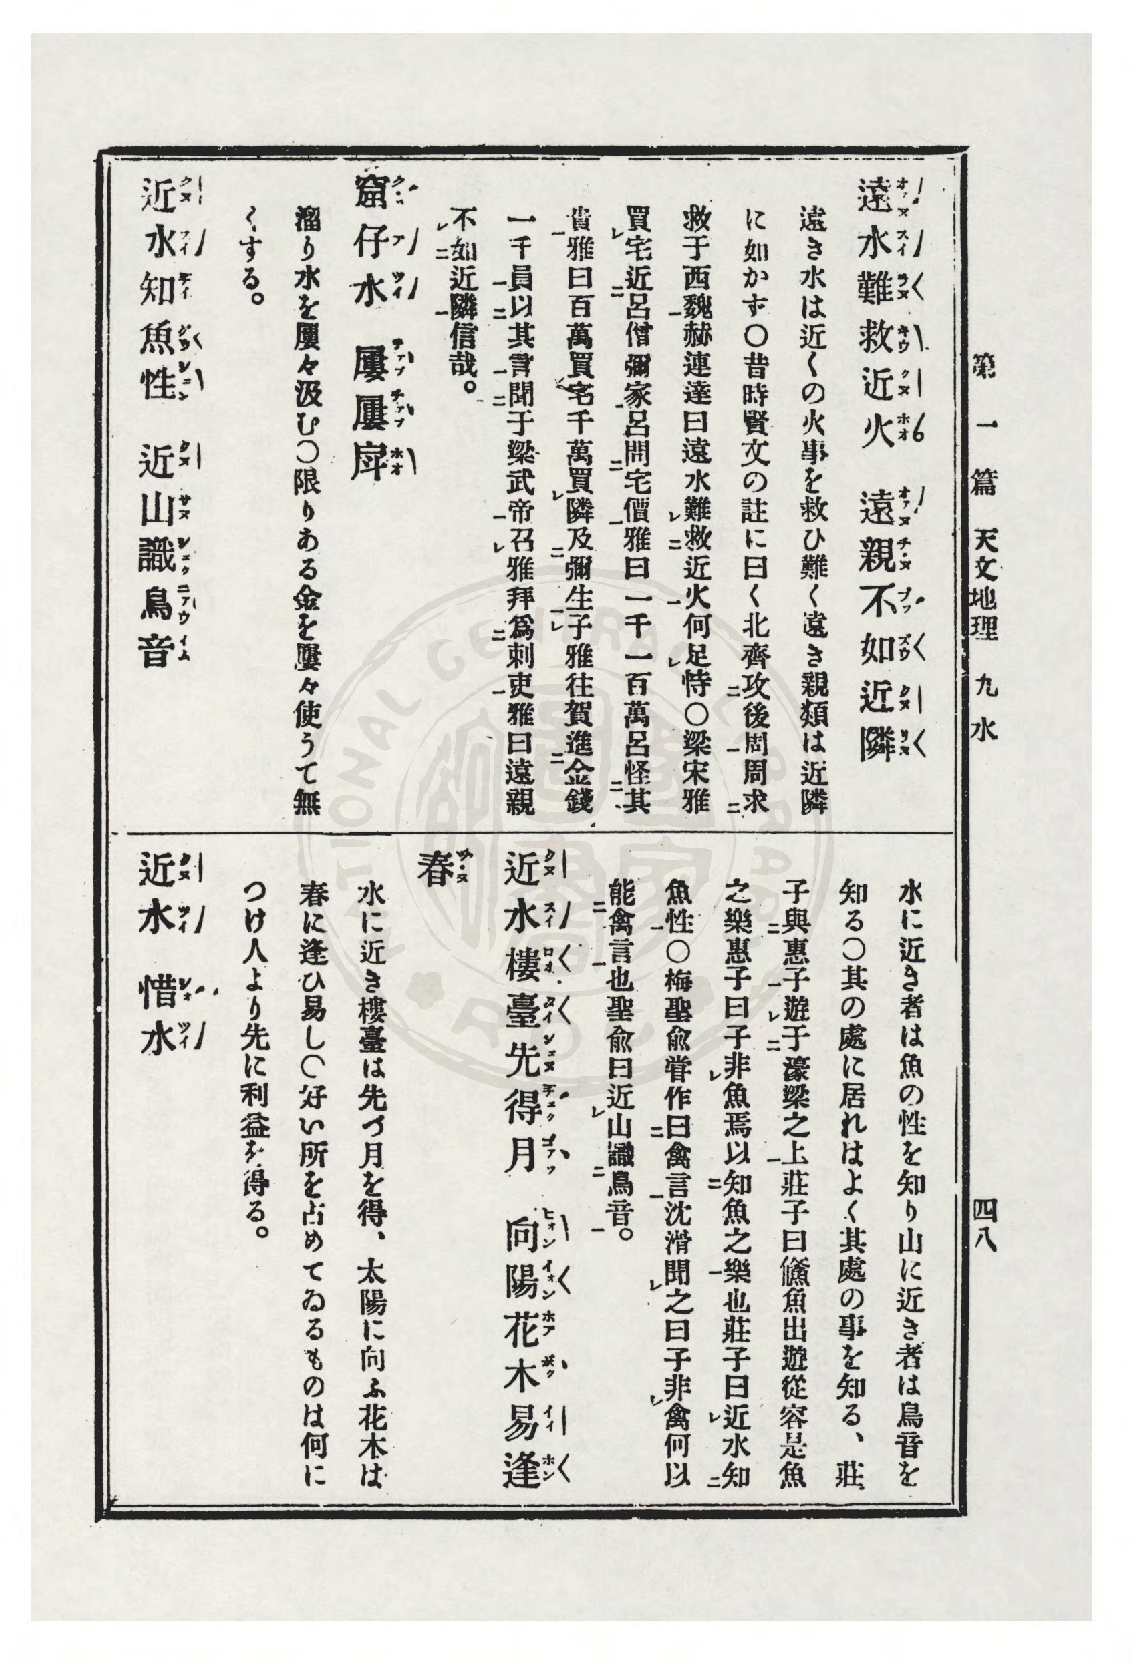 第一篇　天文地理　九　水
四八
遠水難救近火　遠親不如近隣
遠き水は近くの火事を救ひ難く遠き親類は近隣
に如かず〇昔時賢文の註に曰く北齊攻後周周求
救于西魏赫連達曰遠水難救近火何足恃〇梁宋雅
買宅近呂僧彌家呂開宅價雅曰一千一百萬呂怪其
貴雅曰百萬買宅千萬買隣及彌生子雅往賀進金錢
一千員以其言聞于梁武帝召雅拜爲刺吏雅曰遠親
不如近隣信哉。
窟仔水　屢屢戽
溜り水を屢々汲む〇限りある金を屢々使うて無
くする。
近水知魚性　近山識鳥音
水に近き者は魚の性を知り山に近き者は鳥音を
知る〇其の處に居ればよく其處の事を知る、莊
子與惠子遊于濠梁之上莊子曰鯈魚出遊從容是魚
之樂惠子曰子非魚焉以知魚之樂也莊子曰近水知
魚性〇梅聖兪甞作曰禽言沈滑聞之曰子非禽何以
能禽言也聖兪曰近山識鳥音。
近水樓臺先得月　向陽花木易逢
春
水に近き樓臺は先づ月を得、太陽に向ふ花木は
春に逢ひ易し〇好い所を占めてゐるものは何に
つけ人より先に利益を得る。
近水　惜水